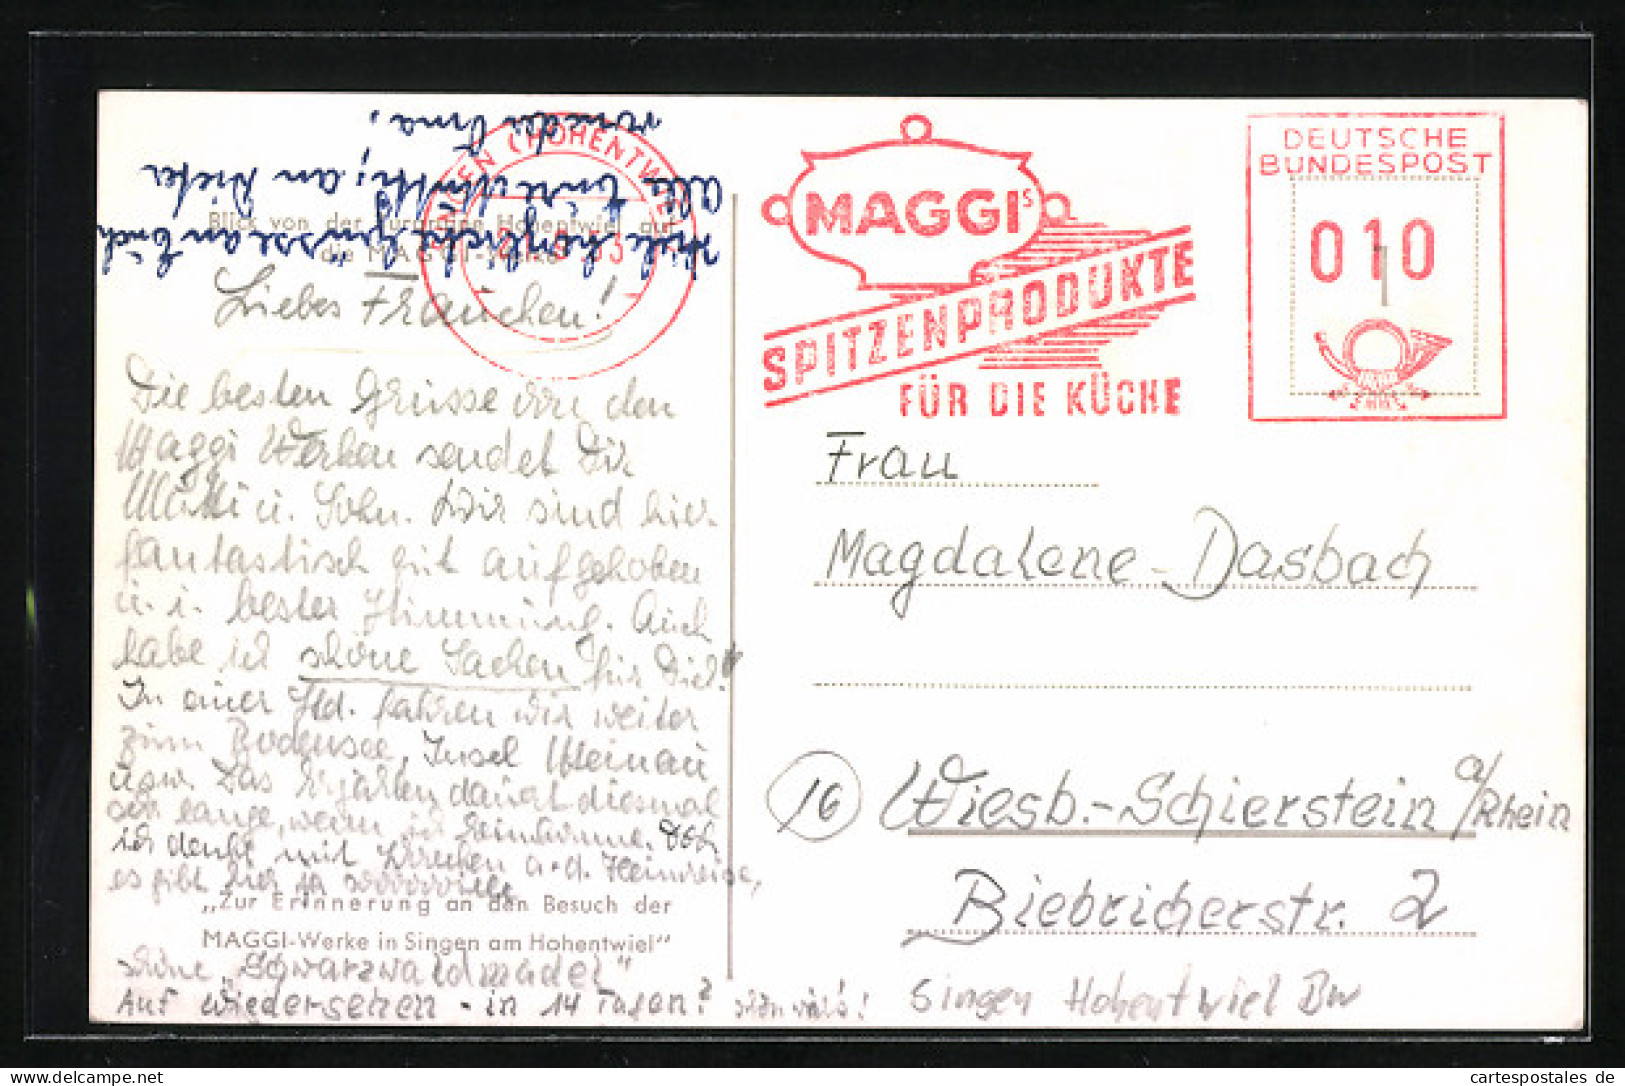 Viele herzliche Grüsse an Euch
alle Eure Mutti, an Dieter
von der Oma,
Blick von der Burgruine Hohentwiel auf
die MAGGI-Werke
SINGEN (HOHENTWIEL)
Liebes Frauchen!
Die besten Grüsse von den
Maggi Werken sendet Dir
Mutti u. Sohn. Wir sind hier
fantastisch gut aufgehoben
u. i. bester Stimmung. Auch
habe ich schöne Sachen für Dich!
In einer Std. fahren wir weiter
zum Bodensee, Insel Meinau
usw. Das Erzählen dauert diesmal
sehr lange, wenn ich heimkomme.
ich denke mit Schrecken a. d. Heimreise,
es gibt hier ja sovovovoviele
„Zur Erinnerung an den Besuch der
MAGGI-Werke in Singen am Hohentwiel"
schöne „Schwarzwaldmädel"
Auf Wiedersehen - in 14 Tagen?
MAGGIs
SPITZENPRODUKTE
FÜR DIE KÜCHE
DEUTSCHE
BUNDESPOST
010
Frau
Magdalene Dasbach
16 Wiesb.-Schierstein a/Rhein
Biebricherstr. 2
Singen Hohentwiel BW
cartespostales de